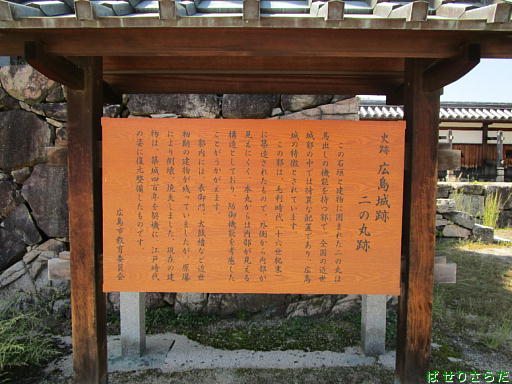 史跡 広島城跡
二の丸跡
この石垣と建物に囲まれた二の丸は
馬出しの機能を持つ郭で、全国の近世
城郭の中では特異な配置であり、広島
城の特徴とされています。
この郭は、毛利時代(十六世紀末)
に築造されたもので、外側から内部が
見えにくく、本丸からは内部が見える
構造としており、防御機能を考慮した
ことがうかがえます。
郭内には、表御門、太鼓櫓など近世
初期の建物が残っていましたが、原爆
により倒壊、焼失しました。現在の建
物は、築城四百年を契機に、江戸時代
の姿に復元整備したものです。
広島市教育委員会
ぱせりさらだ